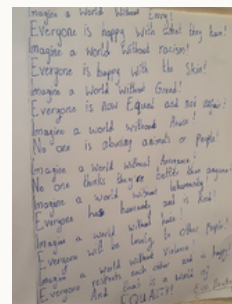 Imagine a World Without Envy!
Everyone is happy With what they have!
Imagine a World Without racism!
Everyone is happy With the Skin!
Imagine a World Without Greed!
Everyone is now Equal and not
Imagine a world without
No one is abusing animals or People!
Imagine a World Without Arrogance!
No one thinks they're better than anyone!
Imagine a World without inhumanity!
Everyone has humanity and is Kind!
Imagine a World without hate!
Everyone will be lovely to other People!
Imagine a World without Violence!
Everyone respects each other and is happy!
And this is a world of
EQUALITY!